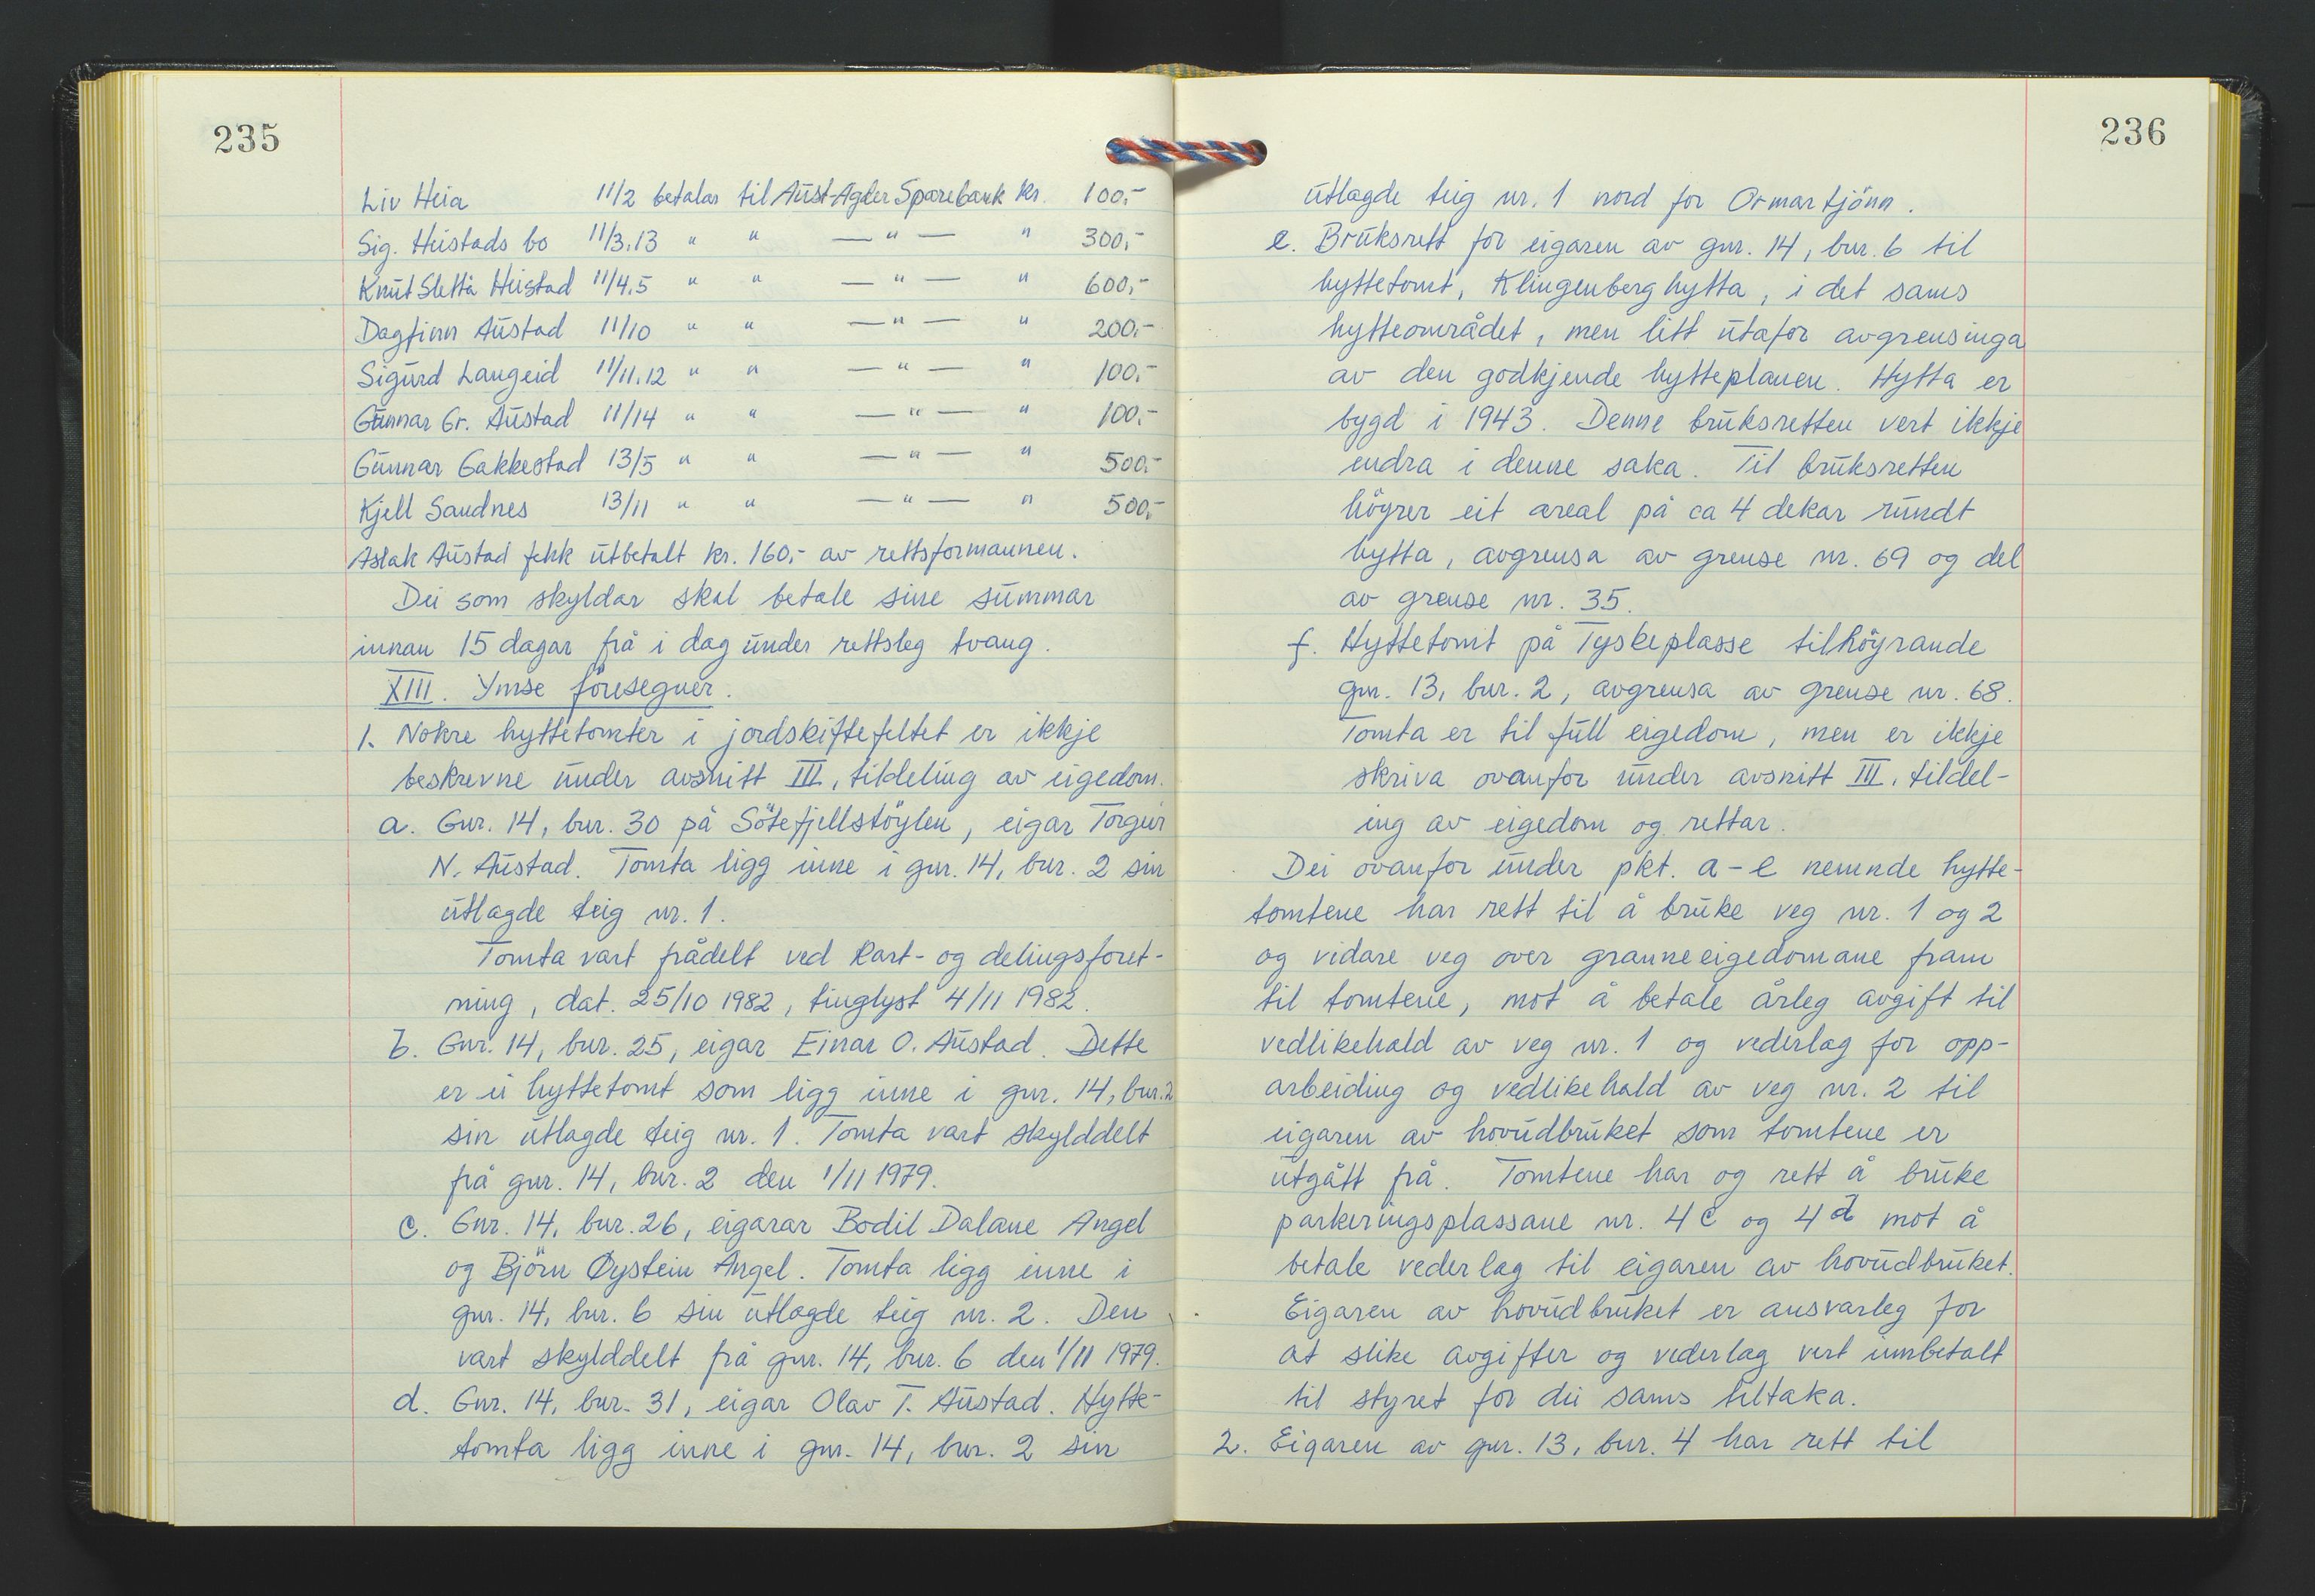 235
Liv Heia 11/2 betalar til Aust-Agder Sparebank kr. 100,-
Sig. Heistads bo 11/3,13 " " — " — " 300,-
Knut Sletta Heistad 11/4,5 " " — " — " 600,-
Dagfinn Austad 11/10 " " — " — " 200,-
Sigurd Langeid 11/11,12 " " — " — " 100,-
Gunnar Gr. Austad 11/14 " " — " — " 100,-
Gunnar Gakkestad 13/5 " " — " — " 500,-
Kjell Sandnes 13/11 " " — " — " 500,-
Aslak Austad fekk utbetalt kr. 160,- av rettsformannen.
Dei som skyldar skal betale sine summar
innan 15 dagar frå i dag under rettsleg tvang.
XIII. Ymse föresegner.
1. Nokre hyttetomter i jordskiftefeltet er ikkje
beskrevne under avsnitt III, tildeling av eigedom.
a. Gnr. 14, bnr. 30 på Sötefjellstöylen, eigar Torgeir
N. Austad. Tomta ligg inne i gnr. 14, bnr. 2 sin
utlagde teig nr. 1.
Tomta vart frådelt ved kart- og delingsforet-
ning, dat. 25/10 1982, tinglyst 4/11 1982.
b. Gnr. 14, bnr. 25, eigar Einar O. Austad. Dette
er ei hyttetomt som ligg inne i gnr. 14, bnr. 2
sin utlagde teig nr. 1. Tomta vart skylddelt
frå gnr. 14, bnr. 2 den 1/11 1979.
c. Gnr. 14, bnr. 26, eigarar Bodil Dalane Angel
og Björn Øystein Angel. Tomta ligg inne i
gnr. 14, bnr. 6 sin utlagde teig nr. 2. Den
vart skylddelt frå gnr. 14, bnr. 6 den 1/11 1979.
d. Gnr. 14, bnr. 31, eigar Olav T. Austad. Hytte-
tomta ligg inne i gnr. 14, bnr. 2 sin
236
utlagde teig nr. 1 nord for Ormartjönn.
e. Bruksrett for eigaren av gnr. 14, bnr. 6 til
hyttetomt, Klingenberghytta, i det sams
hytteområdet, men litt utafor avgrensinga
av den godkjende hytteplanen. Hytta er
bygd i 1943. Denne bruksretten vert ikkje
endra i denne saka. Til bruksretten
höyrer eit areal på ca 4 dekar rundt
hytta, avgrensa av grense nr. 69 og del
av grense nr. 35.
f. Hyttetomt på Tyskeplasse tilhöyrande
gnr. 13, bnr. 2, avgrensa av grense nr. 68.
Tomta er til full eigedom, men er ikkje
skriva ovanfor under avsnitt III. tildel-
ing av eigedom og rettar.
Dei ovanfor under pkt. a-e nemnde hytte-
tomtene har rett til å bruke veg nr. 1 og 2
og vidare veg over granneeigedomane fram
til tomtene, mot å betale årleg avgift til
vedlikehald av veg nr. 1 og vederlag for opp-
arbeiding og vedlikehald av veg nr. 2 til
eigaren av hovudbruket som tomtene er
utgått frå. Tomtene har og rett å bruke
parkeringsplassane nr. 4c og 4d mot å
betale vederlag til eigaren av hovudbruket.
Eigaren av hovudbruket er ansvarleg for
at slike avgifter og vederlag vert innbetalt
til styret for dei sams tiltaka.
2. Eigaren av gnr. 13, bnr. 4 har rett til